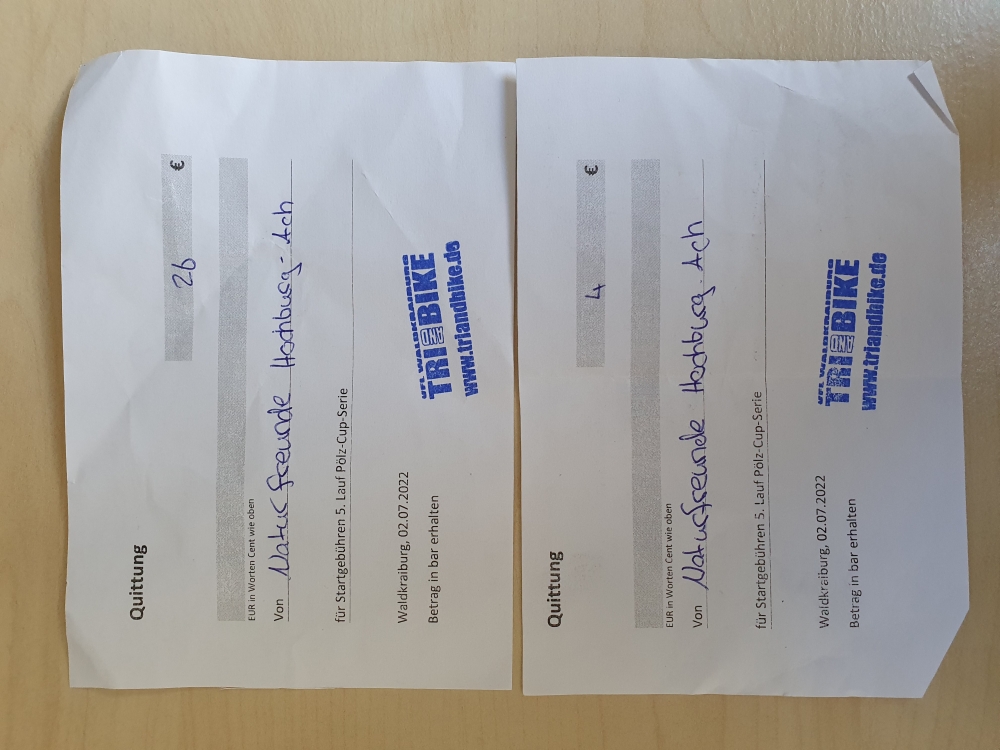 Quittung
26 €
EUR in Worten Cent wie oben
Von Naturfreunde Hochburg-Ach
für Startgebühren 5. Lauf Pölz-Cup-Serie
Waldkraiburg, 02.07.2022
Betrag in bar erhalten
VfL WALDKRAIBURG
TRI AND BIKE
www.triandbike.de
Quittung
4 €
EUR in Worten Cent wie oben
Von Naturfreunde Hochburg-Ach
für Startgebühren 5. Lauf Pölz-Cup-Serie
Waldkraiburg, 02.07.2022
Betrag in bar erhalten
VfL WALDKRAIBURG
TRI AND BIKE
www.triandbike.de